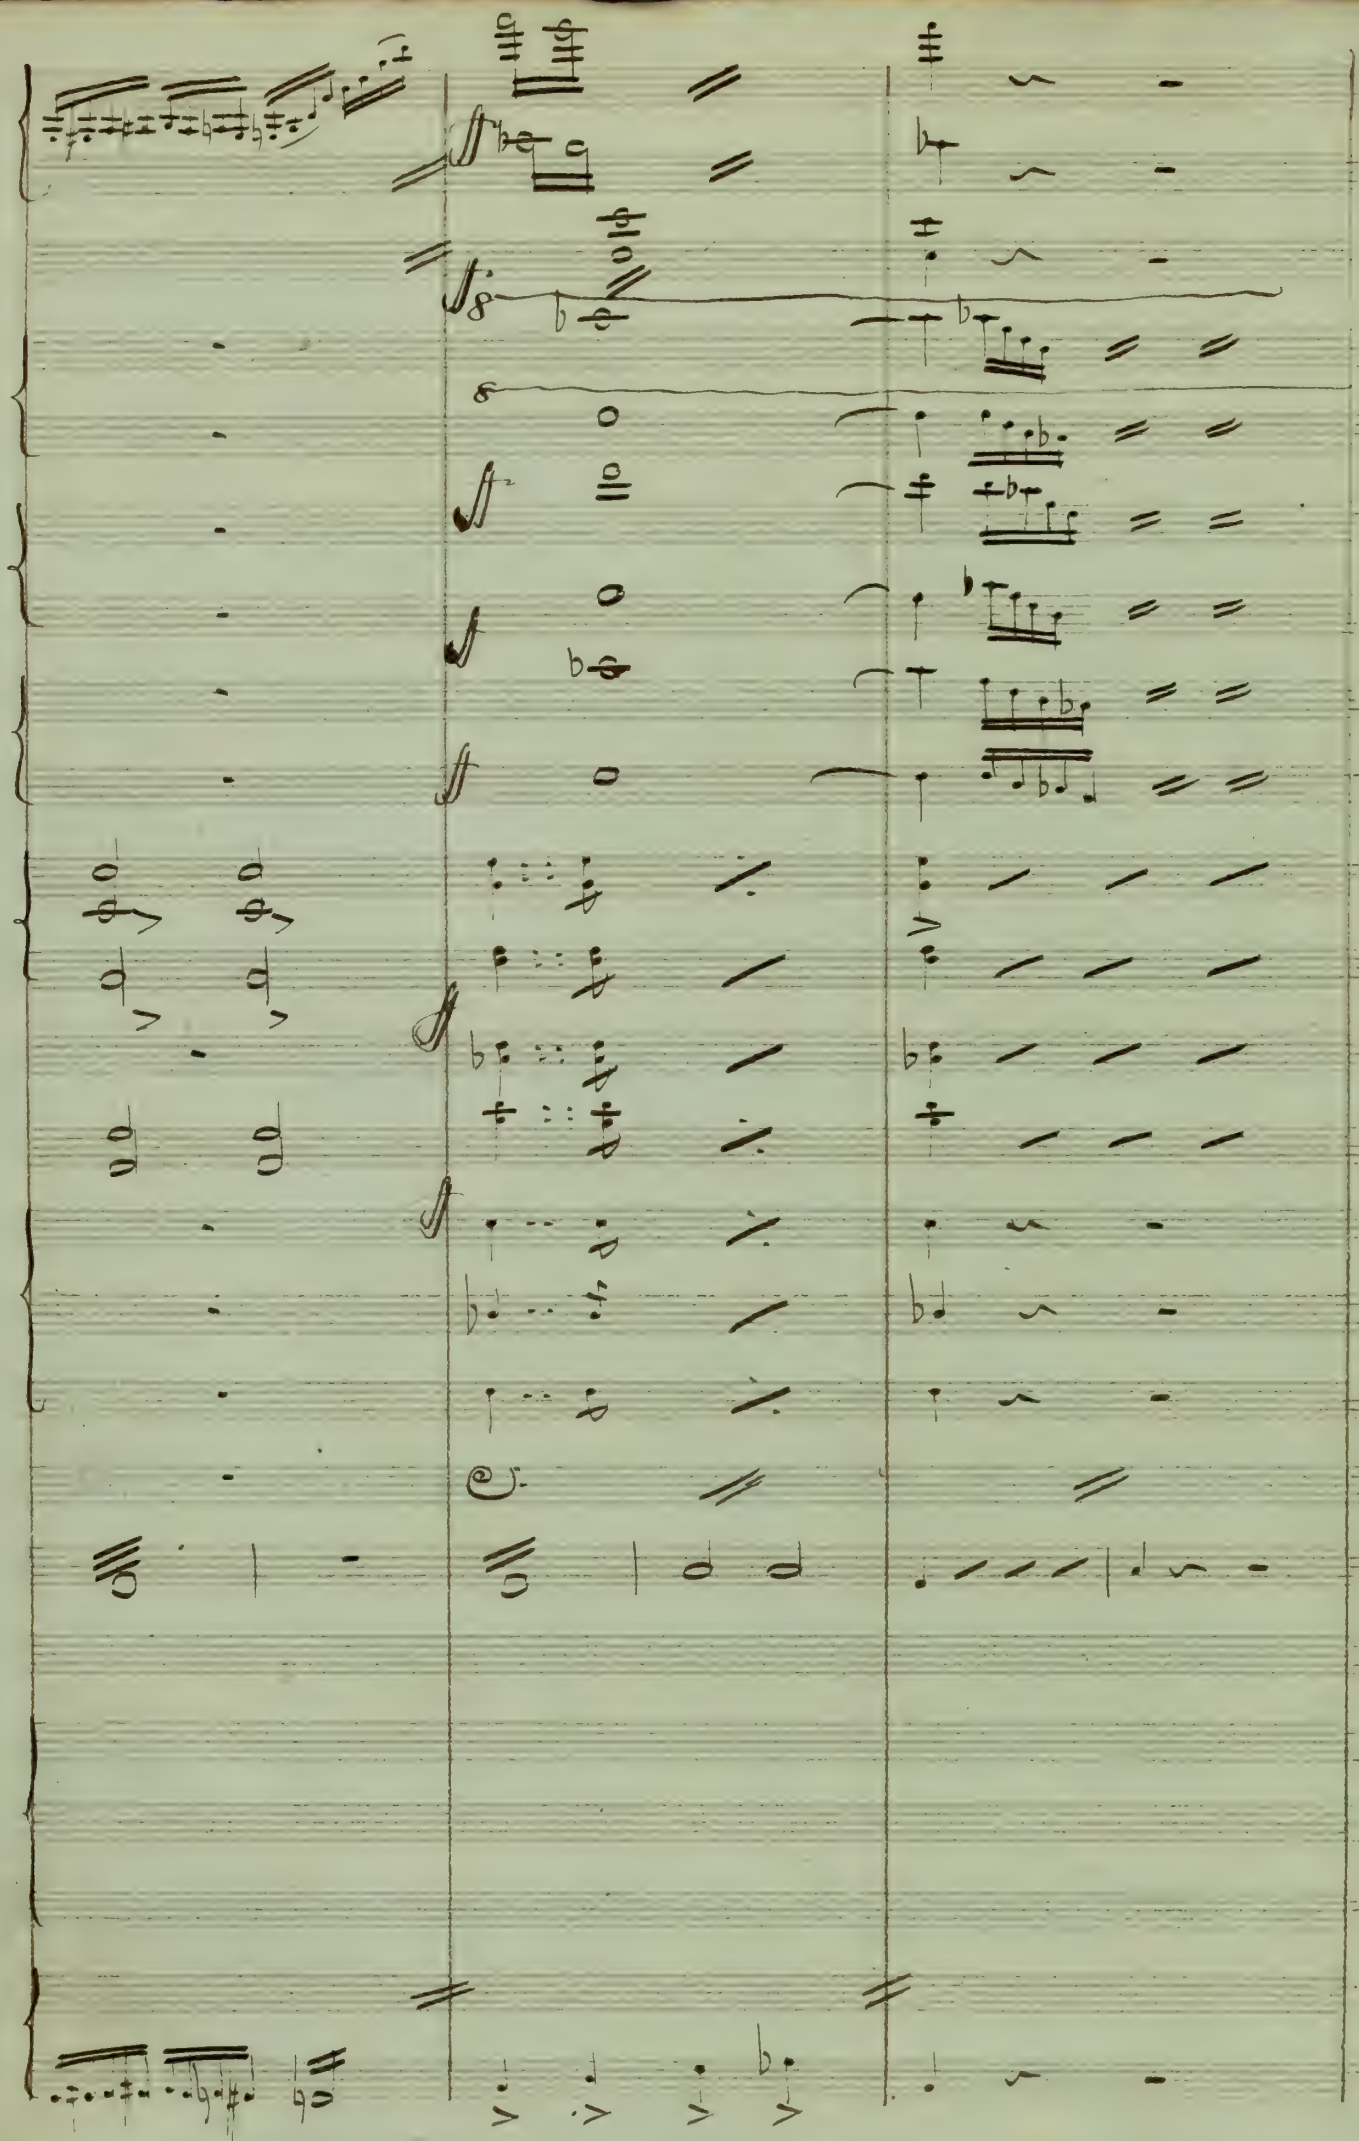 ff
ff
8
8
ff
ff
ff
ff
ff